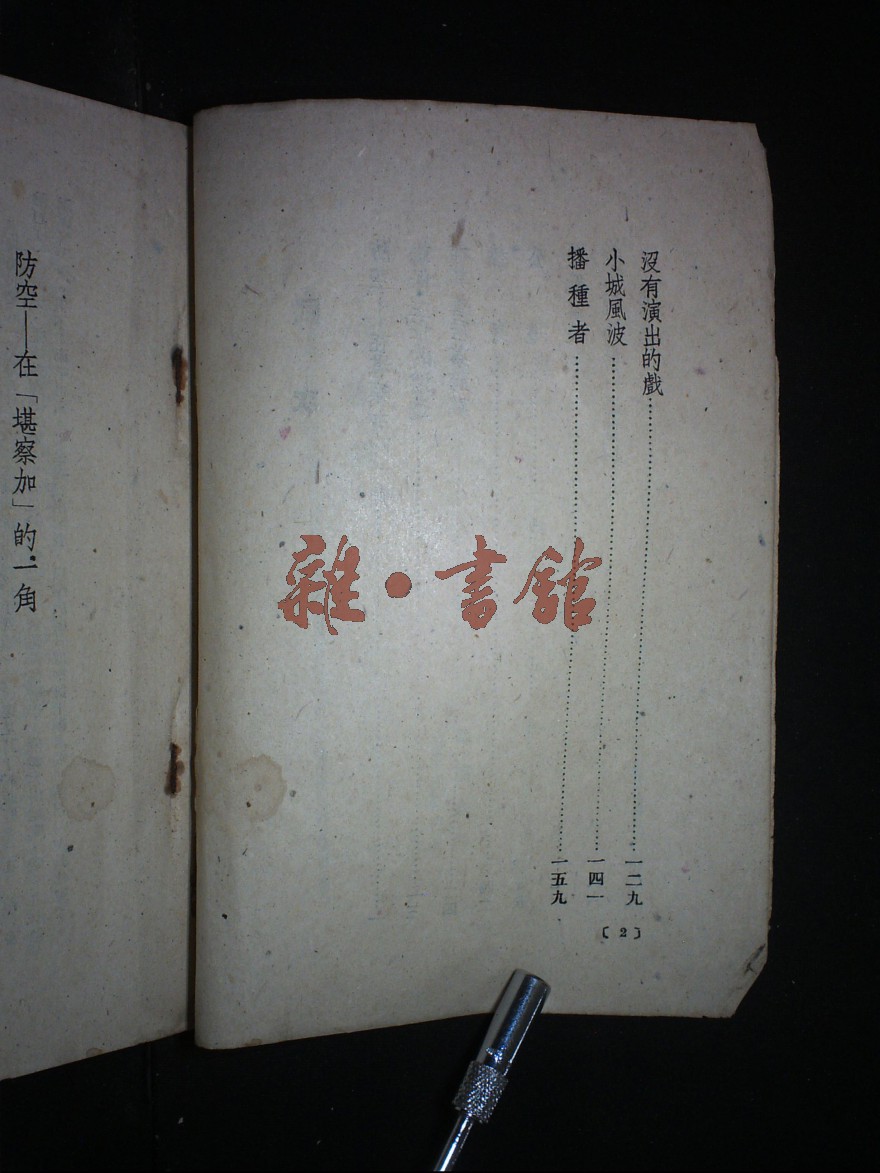 沒有演出的戲……一二九
小城風波……一四一
播種者……一五九
〔2〕
防空——在「堪察加」的一角
雜·書館